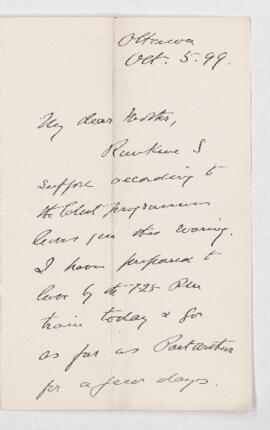 Ottawa
Oct. 5. 99.
My dear Mother,
Rankine I
suppose according to
the latest programme
leaves you this evening.
I have prepared to
leave by the 7.25 PM
train today & go
as far as Port Arthur
for a few days.